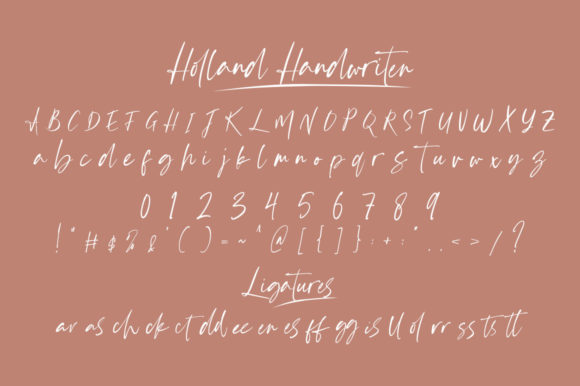 Holland Handwriten
A B C D E F G H I J K L M N O P Q R S T U V W X Y Z
a b c d e f g h i j k l m n o p q r s t u v w x y z
0 1 2 3 4 5 6 7 8 9
! " # $ % & ' ( ) = ~ ^ @ [ { ] } : + ; " . . < > / ?
Ligatures
av as ch ck ct dd ee en es ff gg is ll ol rr ss ts tt